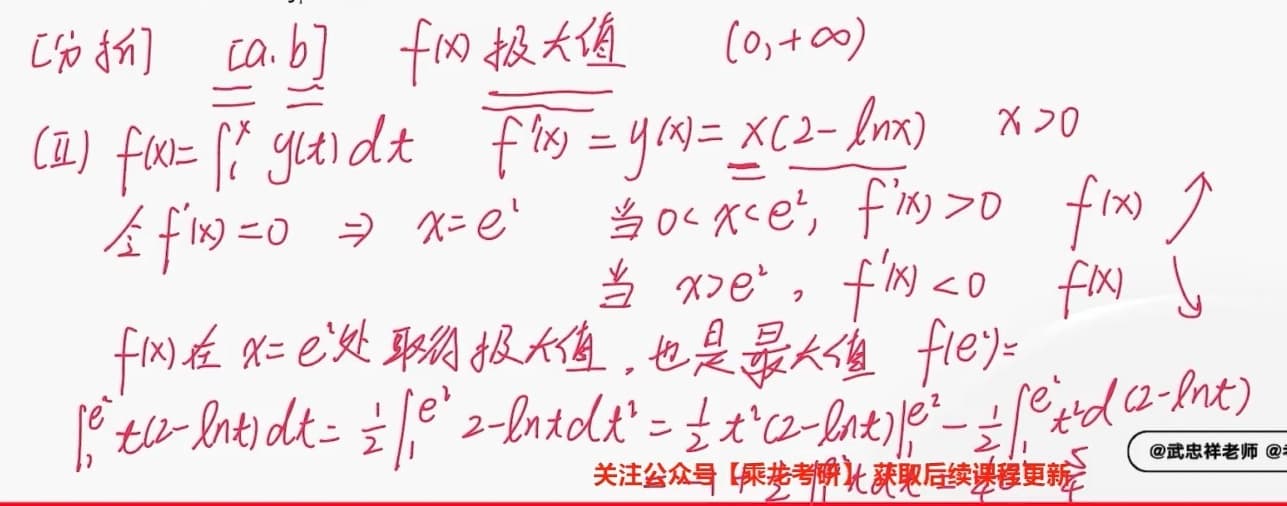 [分析] [a,b] f(x) 极大值 (0,+∞)
(Ⅱ) f(x)=∫₁ˣ y(t)dt f'(x)=y(x)=x(2-lnx) x>0
令 f'(x)=0 ⇒ x=e² 当 0<x<e², f'(x)>0 f(x) ↗
当 x>e², f'(x)<0 f(x) ↘
f(x) 在 x=e² 处 取得 极大值, 也是最大值 f(e²)=
∫₁^{e²} t(2-lnt)dt = 1/2 ∫₁^{e²} 2-lnt dt² = 1/2 t²(2-lnt)|₁^{e²} - 1/2 ∫₁^{e²} t² d(2-lnt)
@武忠祥老师 @
关注公众号【乘龙考研】获取后续课程更新